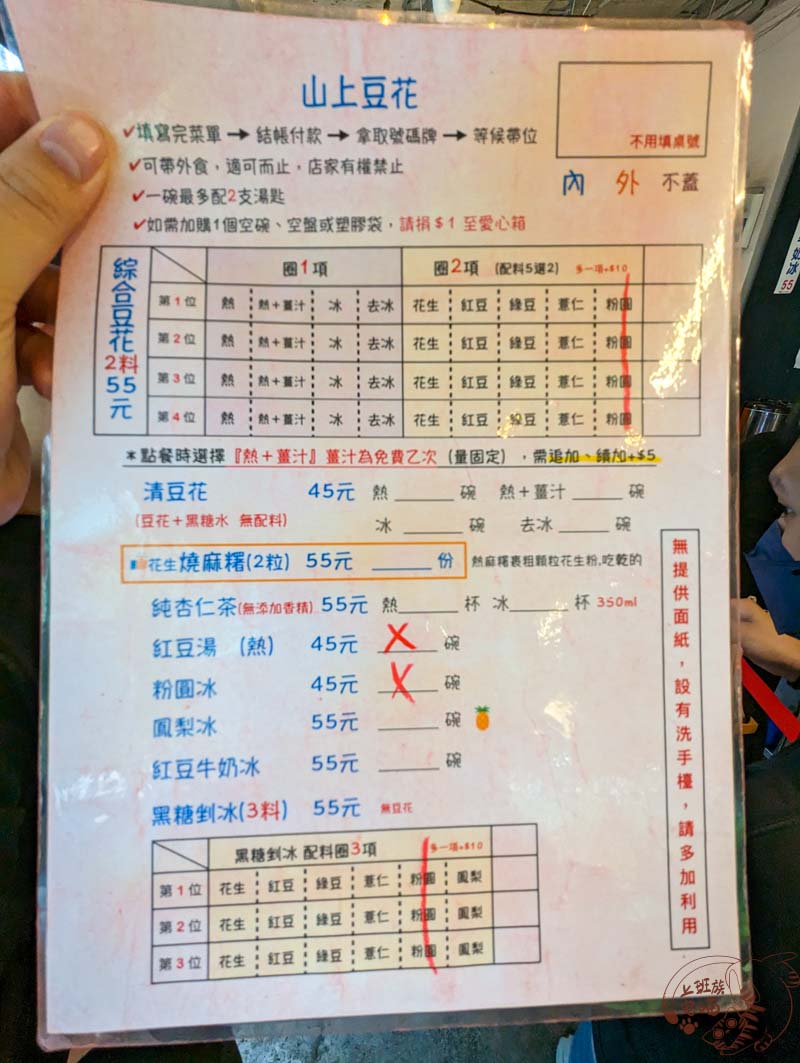 山上豆花
不用填桌號
✓填寫完菜單 → 結帳付款 → 拿取號碼牌 → 等候帶位
✓可帶外食，適可而止，店家有權禁止
內 外 不蓋
✓一碗最多配2支湯匙
✓如需加購1個空碗、空盤或塑膠袋，請捐$1 至愛心箱
綜合豆花2料55元
圈1項 圈2項 (配料5選2) 多一項+$10
第1位 熱 熱+薑汁 冰 去冰 花生 紅豆 綠豆 薏仁 粉圓
第2位 熱 熱+薑汁 冰 去冰 花生 紅豆 綠豆 薏仁 粉圓
第3位 熱 熱+薑汁 冰 去冰 花生 紅豆 綠豆 薏仁 粉圓
第4位 熱 熱+薑汁 冰 去冰 花生 紅豆 綠豆 薏仁 粉圓
*點餐時選擇『熱+薑汁』薑汁為免費乙次 (量固定)，需追加、續加+$5
清豆花 45元 熱 ______ 碗 熱+薑汁 ______ 碗
(豆花+黑糖水 無配料) 冰 ______ 碗 去冰 ______ 碗
花生燒麻糬(2粒) 55元 ______ 份 熱麻糬裹粗顆粒花生粉.吃乾的
純杏仁茶(無添加香精) 55元 熱______ 杯 冰______ 杯 350ml
紅豆湯 (熱) 45元 ______ 碗
粉圓冰 45元 ______ 碗
鳳梨冰 55元 ______ 碗
紅豆牛奶冰 55元 ______ 碗
黑糖剉冰(3料) 55元 無豆花
黑糖剉冰 配料圈3項 多一項+$10
第1位 花生 紅豆 綠豆 薏仁 粉圓 鳳梨
第2位 花生 紅豆 綠豆 薏仁 粉圓 鳳梨
第3位 花生 紅豆 綠豆 薏仁 粉圓 鳳梨
無提供面紙，設有洗手檯，請多加利用
冰
55
上班族